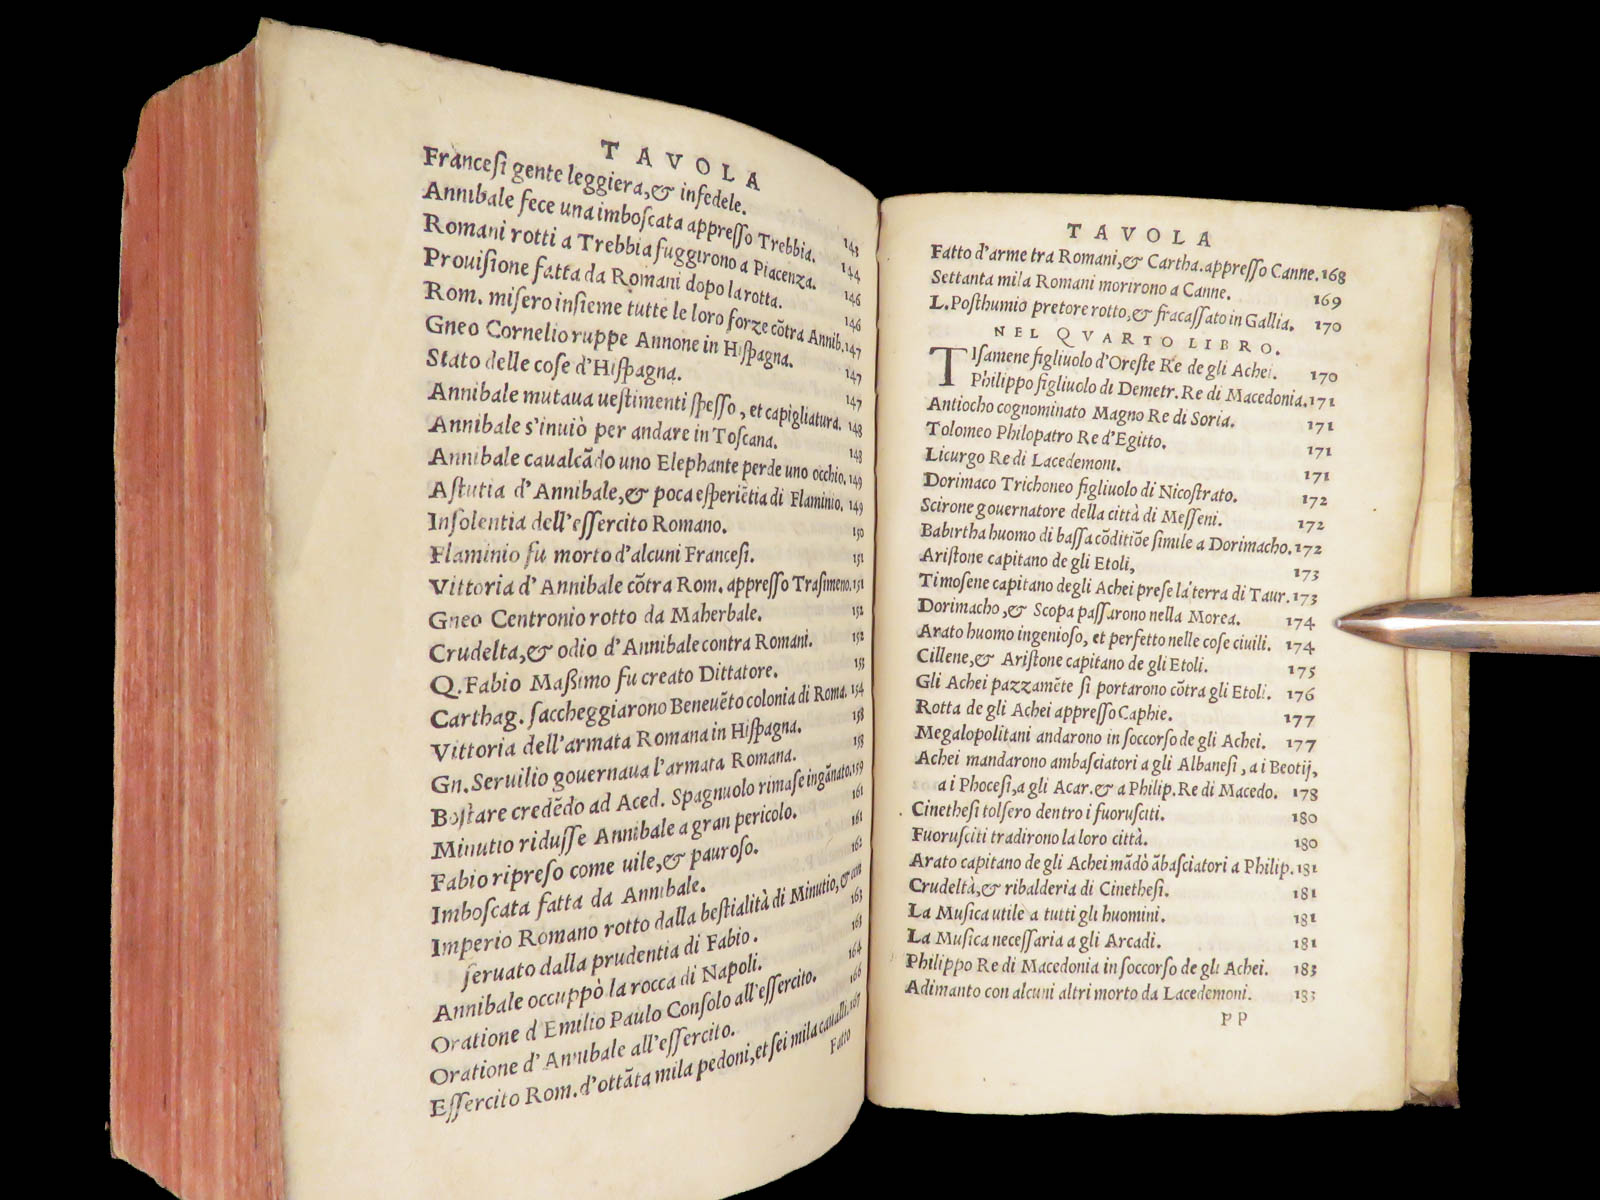 TAVOLA
Franceſi gente leggiera, & infedele. 143
Annibale fece una imboſcata appreſſo Trebbia. 144
Romani rotti a Trebbia fuggirono a Piacenza. 146
Prouiſione fatta da Romani dopo la rotta. 146
Rom. miſero inſieme tutte le loro forze cõtra Annib. 147
Gneo Cornelio ruppe Annone in Hiſpagna. 147
Stato delle coſe d'Hiſpagna. 147
Annibale mutaua ueſtimenti ſpeſſo, et capigliatura. 148
Annibale s'inuiò per andare in Toſcana. 148
Annibale caualcãdo uno Elephante perde uno occhio. 149
Aſtutia d'Annibale, & poca eſperiẽtia di Flaminio. 149
Inſolentia dell'eſſercito Romano. 150
Flaminio fu morto d'alcuni Franceſi. 151
Vittoria d'Annibale cõtra Rom. appreſſo Traſimeno. 151
Gneo Centronio rotto da Maherbale. 152
Crudelta, & odio d'Annibale contra Romani. 152
Q. Fabio Maßimo fu creato Dittatore. 153
Carthag. ſaccheggiarono Beneuẽto colonia di Roma. 154
Vittoria dell'armata Romana in Hiſpagna. 158
Gn. Seruilio gouernaua l'armata Romana. 158
Boſtare credẽdo ad Aced. Spagnuolo rimaſe ingãnato. 159
Minutio riduſſe Annibale a gran pericolo. 161
Fabio ripreſo come uile, & pauroſo. 161
Imboſcata fatta da Annibale. 162
Imperio Romano rotto dalla beſtialità di Minutio, & con
ſeruato dalla prudentia di Fabio. 163
Annibale occuppò la rocca di Napoli. 163
Oratione d Emilio Paulo Conſolo all'eſſercito. 164
Oratione d'Annibale all'eſſercito. 166
Eſſercito Rom. d'ottãta mila pedoni, et ſei mila caualli. 167
Fatto
TAVOLA
Fatto d'arme tra Romani, & Cartha. appreſſo Canne. 168
Settanta mila Romani morirono a Canne. 169
L. Poſthumio pretore rotto, & fracaſſato in Gallia. 170
NEL QVARTO LIBRO.
Tiſamene figliuolo d'Oreſte Re de gli Achei. 170
Philippo figliuolo di Demetr. Re di Macedonia. 171
Antiocho cognominato Magno Re di Soria. 171
Tolomeo Philopatro Re d'Egitto. 171
Licurgo Re di Lacedemoni. 171
Dorimaco Trichoneo figliuolo di Nicoſtrato. 172
Scirone gouernatore della città di Meſſeni. 172
Babirtha huomo di baſſa cõditiõe ſimile a Dorimacho. 172
Ariſtone capitano de gli Etoli, 173
Timoſene capitano degli Achei preſe la terra di Taur. 173
Dorimacho, & Scopa paſſarono nella Morea. 174
Arato huomo ingenioſo, et perfetto nelle coſe ciuili. 174
Cillene, & Ariſtone capitano de gli Etoli. 175
Gli Achei pazzamẽte ſi portarono cõtra gli Etoli. 176
Rotta de gli Achei appreſſo Caphie. 177
Megalopolitani andarono in ſoccorſo de gli Achei. 177
Achei mandarono ambaſciatori a gli Albaneſi, a i Beotij,
a i Phoceſi, a gli Acar. & a Philip. Re di Macedo. 178
Cinetheſi tolſero dentro i fuoruſciti. 180
Fuoruſciti tradirono la loro città. 180
Arato capitano de gli Achei mãdò ãbaſciatori a Philip. 181
Crudeltà, & ribalderia di Cinetheſi. 181
La Muſica utile a tutti gli huomini. 181
La Muſica neceſſaria a gli Arcadi. 181
Philippo Re di Macedonia in ſoccorſo de gli Achei. 183
Adimanto con alcuni altri morto da Lacedemoni. 183
PP